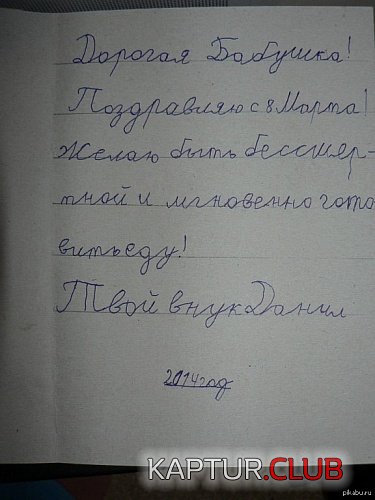 Дорогая Бабушка!
Поздравляю с 8 Марта!
Желаю быть бессмер-
тной и мгновенно гото
вить еду!
Твой внук Данил
2014 год
KAPTUR.CLUB
pikabu.ru